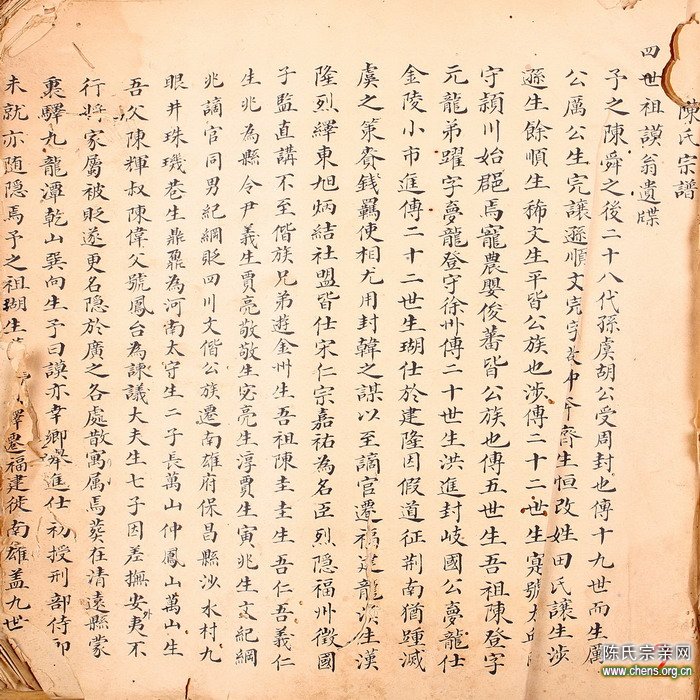 陳氏宗譜
四世祖謨翁遺牒
子之陳舜之後二十八代孫虞胡公受周封也傳十九世而生厲
公厲公生完讓遜順文完字 仲 齊生恒改姓田氏讓生涉
遜生餘順生稀文生平皆公族也涉傳二十二世生寔號太
守潁川始郡焉寵農嬰俊蕃皆公族也傳五世生吾祖陳登字
元龍弟躍字夢龍登守徐州傳二十世生洪進封岐國公夢龍仕
金陵小市進傳二十二世生瑚仕於建隆因假道征荆南猶踵滅
虞之策賫錢羈使相尤用封韓之謀以至謫官遷福建龍 生漢
隆烈繹東旭炳結社盟皆仕宋仁宗嘉祐為名臣烈隱福州徵國
子監直講不至偕族兄弟遊金州生吾祖陳圭圭生吾仁吾義仁
生兆為縣令尹義生賈亮敬敬生宓亮生淳賈生寅兆生文紀綱
兆謫官同男紀綱貶四川文偕公族遷南雄府保昌縣沙水村九
眼井珠璣巷生鼎鼐為河南太守生二子長萬山仲鳳山萬山生
吾父陳輝叔陳偉父號鳳台為諫議大夫生七子因差撫安外夷不
行將家屬被貶遂更名隐於廣之各處散寓属焉葬在清遠縣蒙
裏驛九龍潭乾山巽向生予曰謨亦幸鄉舉進仕初授刑部侍
未就亦随隐焉予之祖瑚生 繹遷福建徙南雄盖九世
陈氏宗亲网
www.chens.org.cn